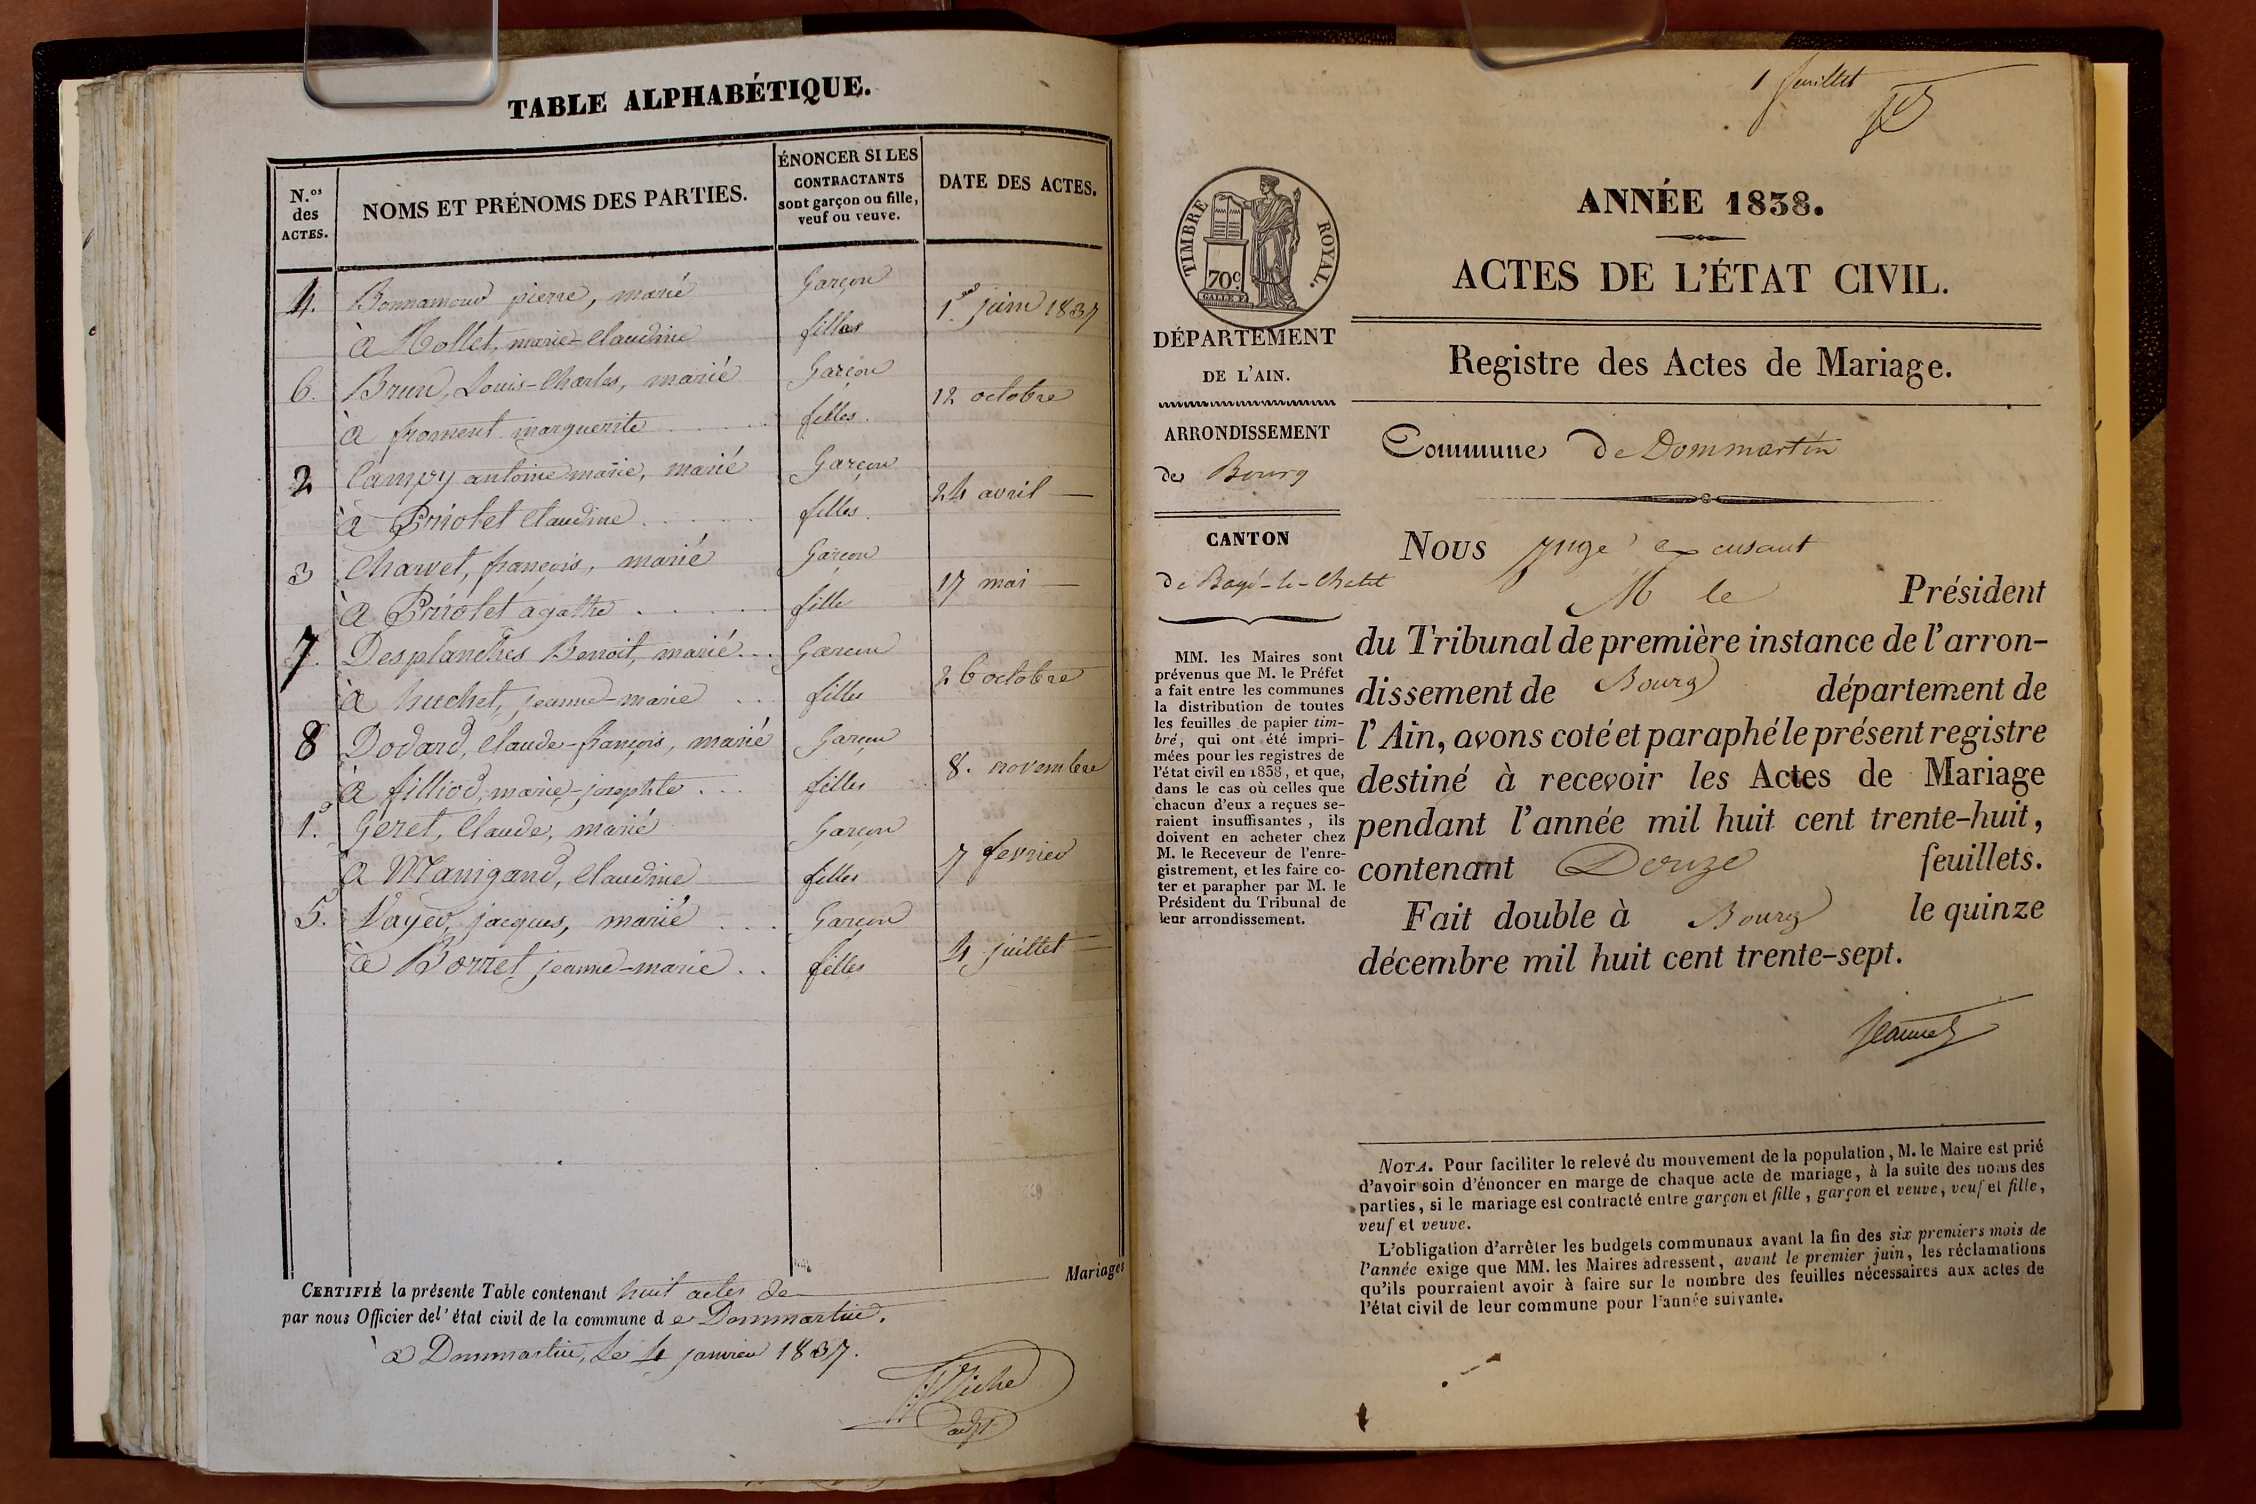 TABLE ALPHABÉTIQUE.
N.os des ACTES.
NOMS ET PRÉNOMS DES PARTIES.
ÉNONCER SI LES
CONTRACTANTS
sont garçon ou fille,
veuf ou veuve.
DATE DES ACTES.
4. Bonnamour pierre, marié Garçon
à Rollet, marie-Claudine filles 1er juin 1837
6. Brun, Louis-Charles, marié Garçon
à froment marguerite filles. 12 octobre
2 Campy antoine marie, marié Garçon
à Priolet Claudine filles. 24 avril
3 Charvet, françois, marié Garçon
à Priolet agathe fille 17 mai
7. Desplanches Benoit, marié Garçon
à huchet, jeanne-marie filles 26 octobre
8 Dodard, Claude-françois, marié Garçon
à filliod, marie-josephte filles 8. novembre
1. Geret, Claude, marié Garçon
à Manigand, Claudine filles 7 fevrier
5. Vayer, jacques, marié Garçon
à Borret jeanne-marie filles 4 juillet
CERTIFIÉ la présente Table contenant huit actes de Mariages
par nous Officier del'état civil de la commune de Dommartin.
à Dommartin, le 4 janvier 1837.
1 feuillet
TIMBRE ROYAL.
70c
ANNÉE 1838.
ACTES DE L'ÉTAT CIVIL.
DÉPARTEMENT
DE L'AIN.
ARRONDISSEMENT
de Bourg
CANTON
de Bagé-le-Chatel
MM. les Maires sont
prévenus que M. le Préfet
a fait entre les communes
la distribution de toutes
les feuilles de papier tim-
bré, qui ont été impri-
mées pour les registres de
l'état civil en 1838, et que,
dans le cas où celles que
chacun d'eux a reçues se-
raient insuffisantes, ils
doivent en acheter chez
M. le Receveur de l'enre-
gistrement, et les faire co-
ter et parapher par M. le
Président du Tribunal de
leur arrondissement.
Registre des Actes de Mariage.
Commune de Dommartin
Nous juge excusant
M le Président
du Tribunal de première instance de l'arron-
dissement de Bourg département de
l'Ain, avons coté et paraphé le présent registre
destiné à recevoir les Actes de Mariage
pendant l'année mil huit cent trente-huit,
contenant Douze feuillets.
Fait double à Bourg le quinze
décembre mil huit cent trente-sept.
NOTA. Pour faciliter le relevé du mouvement de la population, M. le Maire est prié
d'avoir soin d'énoncer en marge de chaque acte de mariage, à la suite des noms des
parties, si le mariage est contracté entre garçon et fille, garçon et veuve, veuf et fille,
veuf et veuve.
L'obligation d'arrêter les budgets communaux avant la fin des six premiers mois de
l'année exige que MM. les Maires adressent, avant le premier juin, les réclamations
qu'ils pourraient avoir à faire sur le nombre des feuilles nécessaires aux actes de
l'état civil de leur commune pour l'année suivante.